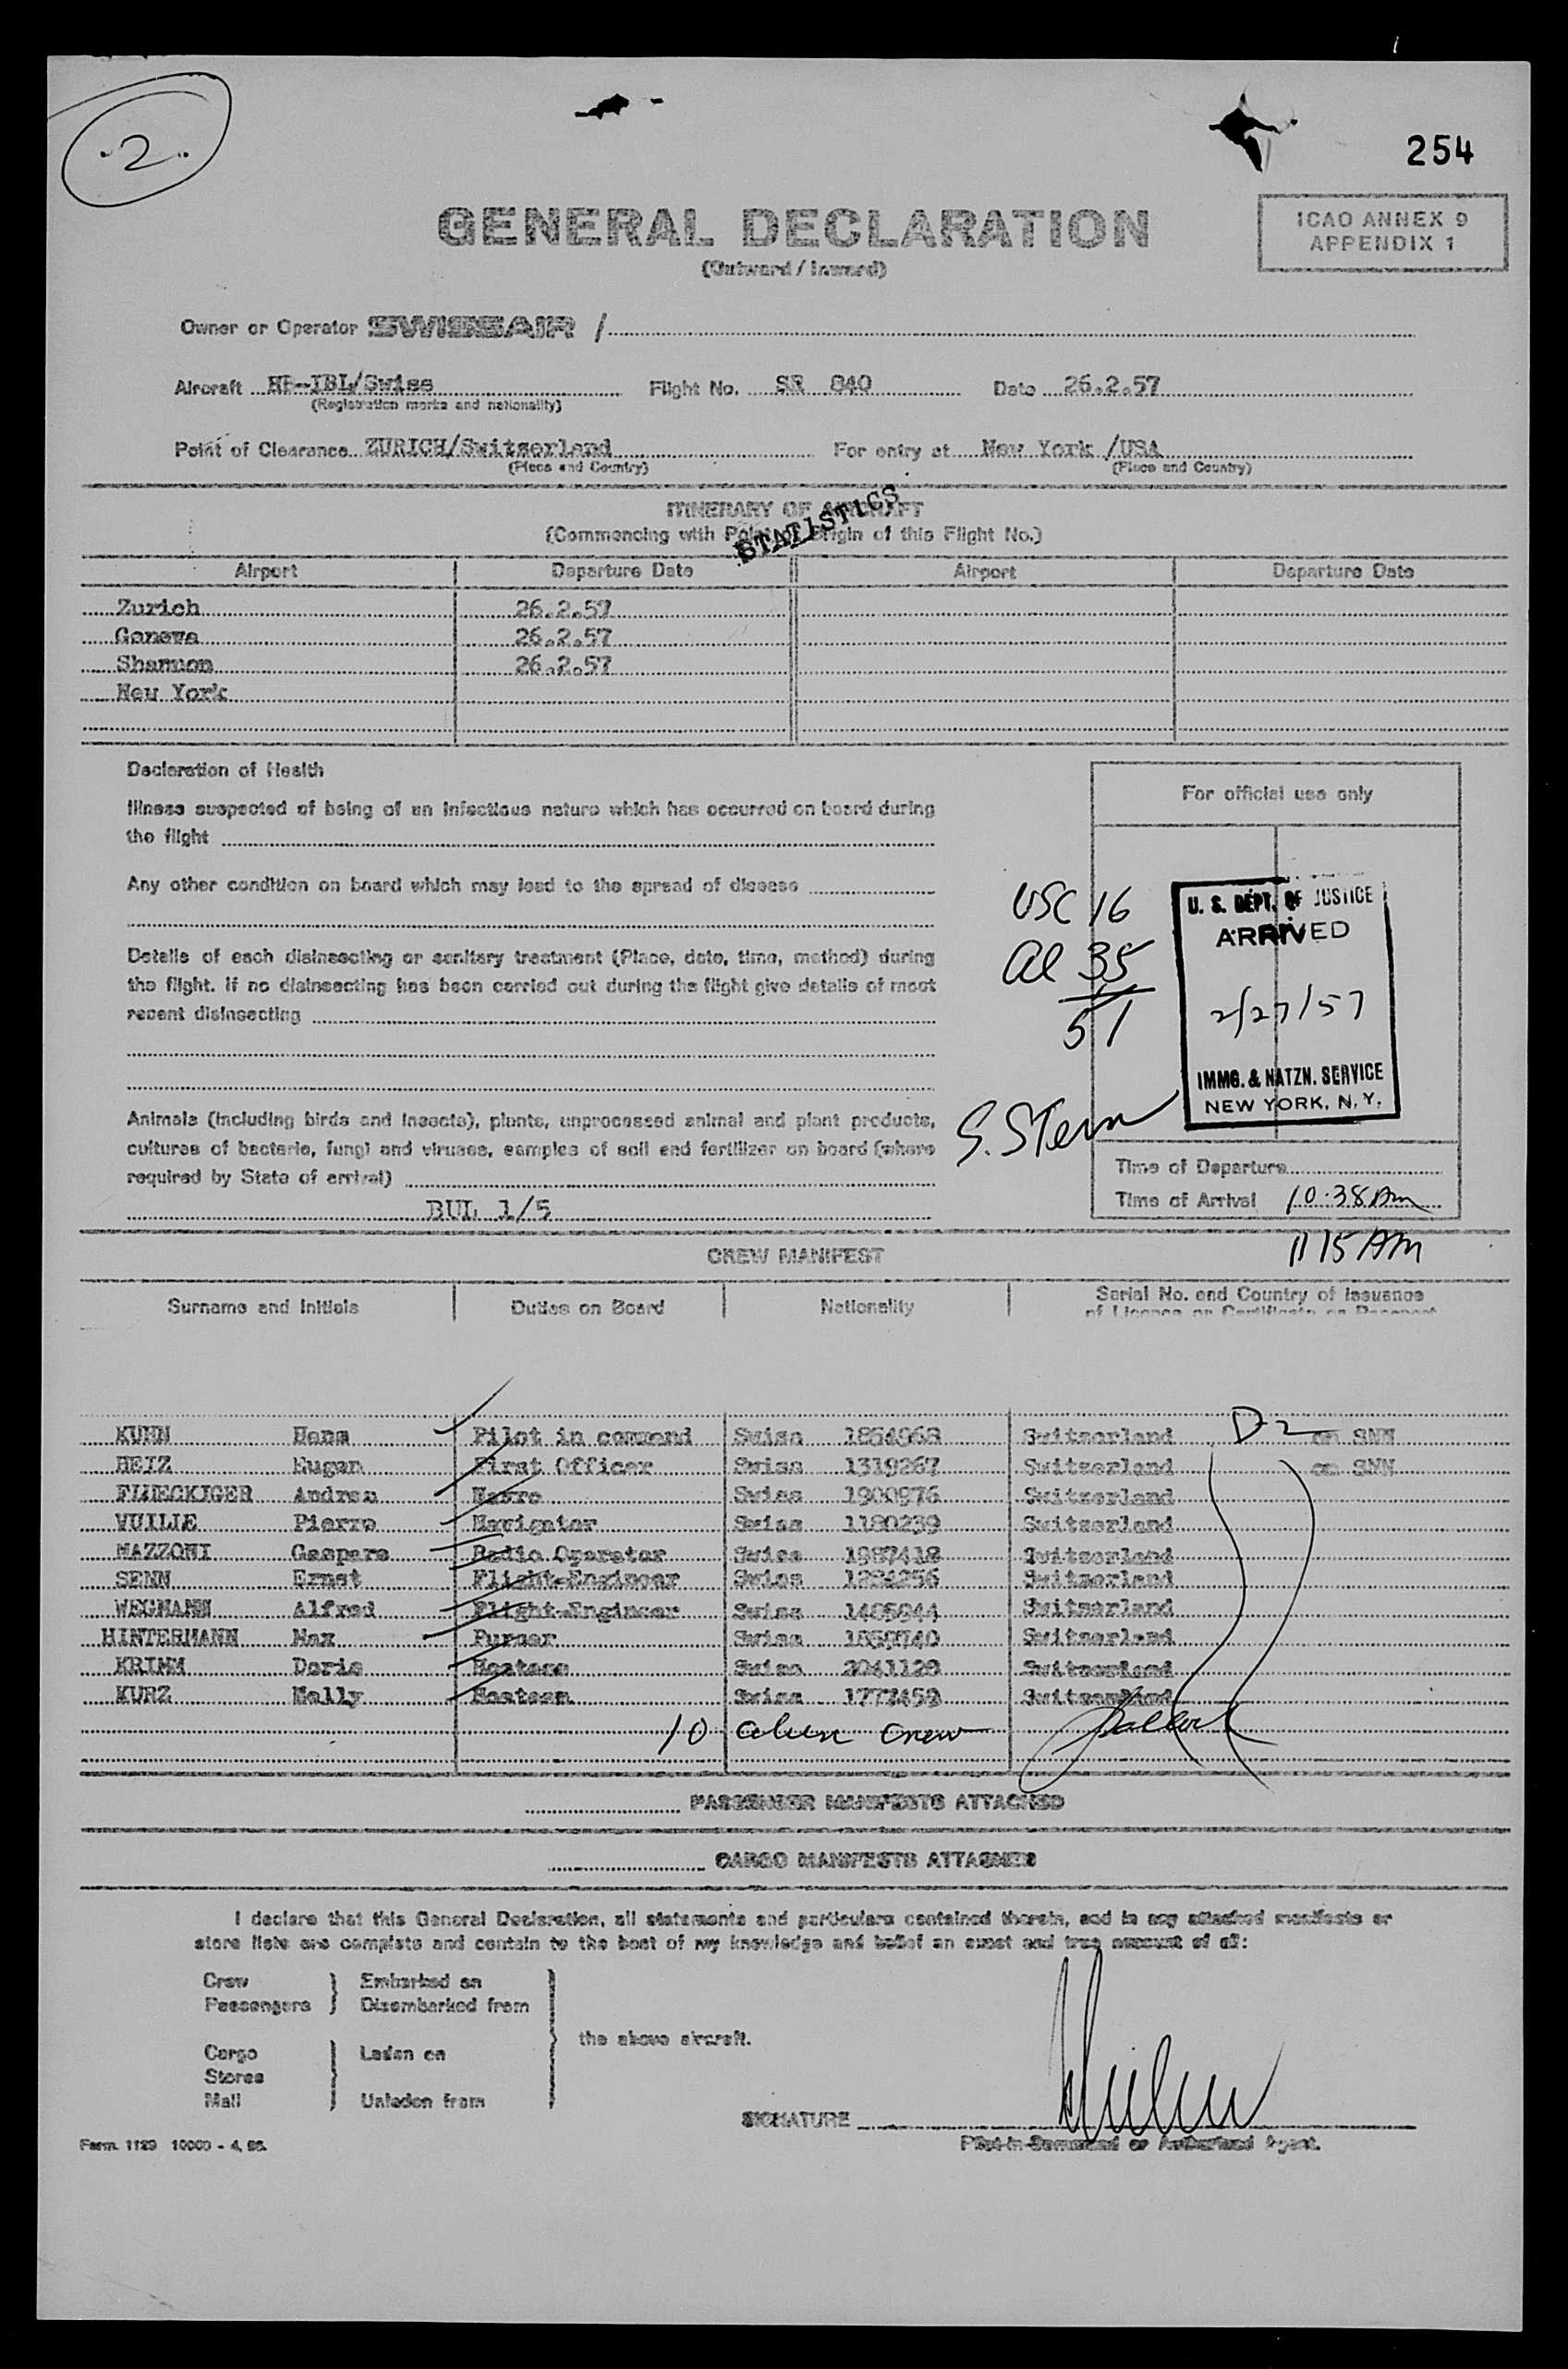 2
254
GENERAL DECLARATION
(Outward / Inward)
ICAO ANNEX 9
APPENDIX 1
Owner or Operator SWISSAIR /
Aircraft HB-IBL/Swiss Flight No. SR 840 Date 26.2.57
(Registration marks and nationality)
Point of Clearance ZURICH/Switzerland For entry at New York /USA
(Place and Country) (Place and Country)
ITINERARY OF AIRCRAFT
STATISTICS
(Commencing with Point of Origin of this Flight No.)
Airport Departure Date Airport Departure Date
Zurich 26.2.57
Geneva 26.2.57
Shannon 26.2.57
New York
Declaration of Health
For official use only
Illness suspected of being of an infectious nature which has occurred on board during
the flight
Any other condition on board which may lead to the spread of disease
USC 16
Al 35
51
U. S. DEPT. OF JUSTICE
ARRIVED
2/27/57
IMMG. & NATZN. SERVICE
NEW YORK, N.Y.
Details of each disinsecting or sanitary treatment (Place, date, time, method) during
the flight. If no disinsecting has been carried out during the flight give details of most
recent disinsecting
Animals (including birds and insects), plants, unprocessed animal and plant products,
cultures of bacteria, fungi and viruses, samples of soil and fertilizer on board (where
required by State of arrival)
S. Stern
BUL 1/5
Time of Departure
Time of Arrival 10:38 Am
11 15 AM
CREW MANIFEST
Surname and Initials Duties on Board Nationality Serial No. and Country of Issuance
of Licence or Certificate or Passport
KUHN Hans Pilot in command Swiss 1854968 Switzerland D-2 on SNN
HEIZ Eugen First Officer Swiss 1319267 Switzerland on SNN
FLUECKIGER Andrea Swiss 1900976 Switzerland
VUILLE Pierre Navigator Swiss 1180239 Switzerland
MAZZONI Gaspare Radio Operator Swiss 1987418 Switzerland
SENN Ernst Flight-Engineer Swiss 1284256 Switzerland
WEGMANN Alfred Flight-Engineer Swiss 1405844 Switzerland
HINTERMANN Max Purser Swiss 1859740 Switzerland
KRIMM Doris Hostess Swiss 2041129 Switzerland
KURZ Nelly Hostess Swiss 1772459 Switzerland
10 alien crew
PASSENGER MANIFESTS ATTACHED
CARGO MANIFESTS ATTACHED
I declare that this General Declaration, all statements and particulars contained therein, and in any attached manifests or
store lists are complete and contain to the best of my knowledge and belief an exact and true account of all:
Crew Embarked on
Passengers Disembarked from
the above aircraft.
Cargo Laden on
Stores
Mail Unladen from
SIGNATURE
Form. 1129 10000 - 4, 56.
Pilot-in-Command or Authorized Agent.